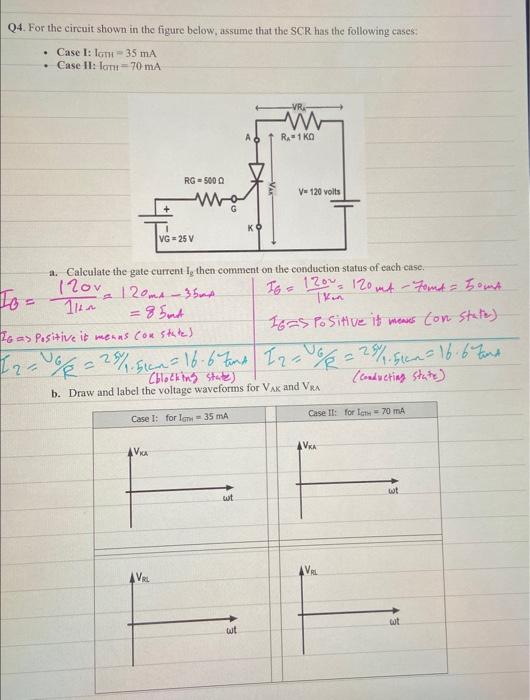 Q4. For the circuit shown in the figure below, assume that the SCR has the following cases:
• Case I: IGTH = 35 mA
• Case II: IGTH = 70 mA
VRA
A
RA = 1 KΩ
RG = 500 Ω
VAK
V= 120 volts
+
G
K
VG = 25 V
a. Calculate the gate current Ig then comment on the conduction status of each case.
IG = 120v/1kΩ = 120mA - 35mA
= 85mA
IG => Positive it means (on state)
I2 = VG/R = 25V/1.5kΩ = 16.67mA
(blocking state)
IG = 120v/1kΩ = 120mA - 70mA = 50mA
IG => Positive it means (on state)
I2 = VG/R = 25V/1.5kΩ = 16.67mA
(conducting state)
b. Draw and label the voltage waveforms for VAK and VRA
Case I: for IGTH = 35 mA
Case II: for IGTH = 70 mA
VKA
ωt
VKA
ωt
VRL
ωt
VRL
ωt